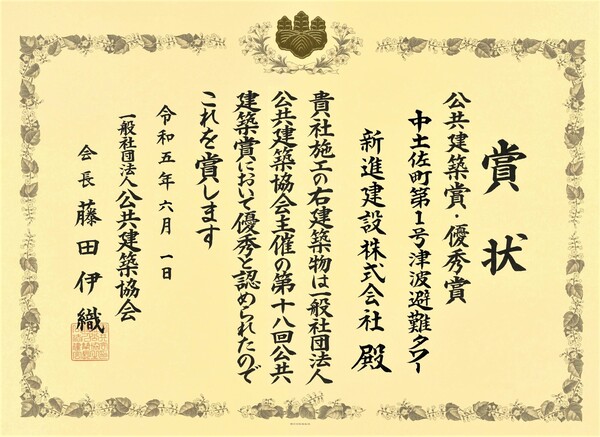 賞状
公共建築賞・優秀賞
中土佐町第1号津波避難タワー
新進建設株式会社 殿
貴社施工の右建築物は一般社団法人
公共建築協会主催の第十八回公共
建築賞において優秀と認められたので
これを賞します
令和五年六月一日
一般社団法人公共建築協会
会長 藤田伊織